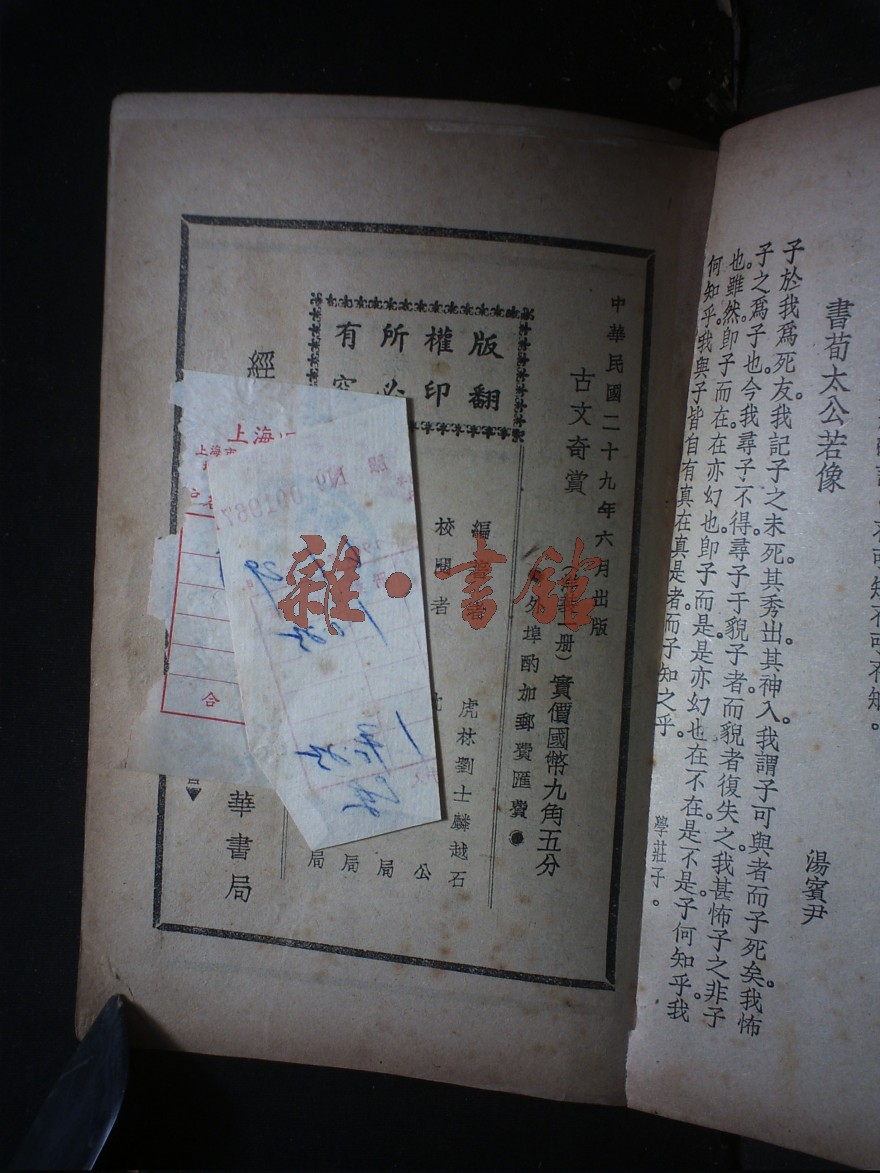 不可知不可不知。
書荀太公若像
湯賓尹
子於我爲死友。我記子之未死。其秀出。其神入。我謂子可與者。而子死矣。我怖
子之爲子也。今我尋子不得。尋子于貌子者。而貌者復失之。我甚怖子之非子
也。雖然。即子而在。在亦幻也。即子而是。是亦幻也。在不在。是不是。子何知乎。我
何知乎。我與子皆自有真在真是者。而子知之乎。
學莊子。
中華民國二十九年六月出版
古文奇賞
一册）實價國幣九角五分
外埠酌加郵費匯費
版權所有
翻印必究
編
者
校閱者
虎林劉士麟越石
公
局
局
局
經
華書局
上海
上海市
No 001067
合
雜·書館